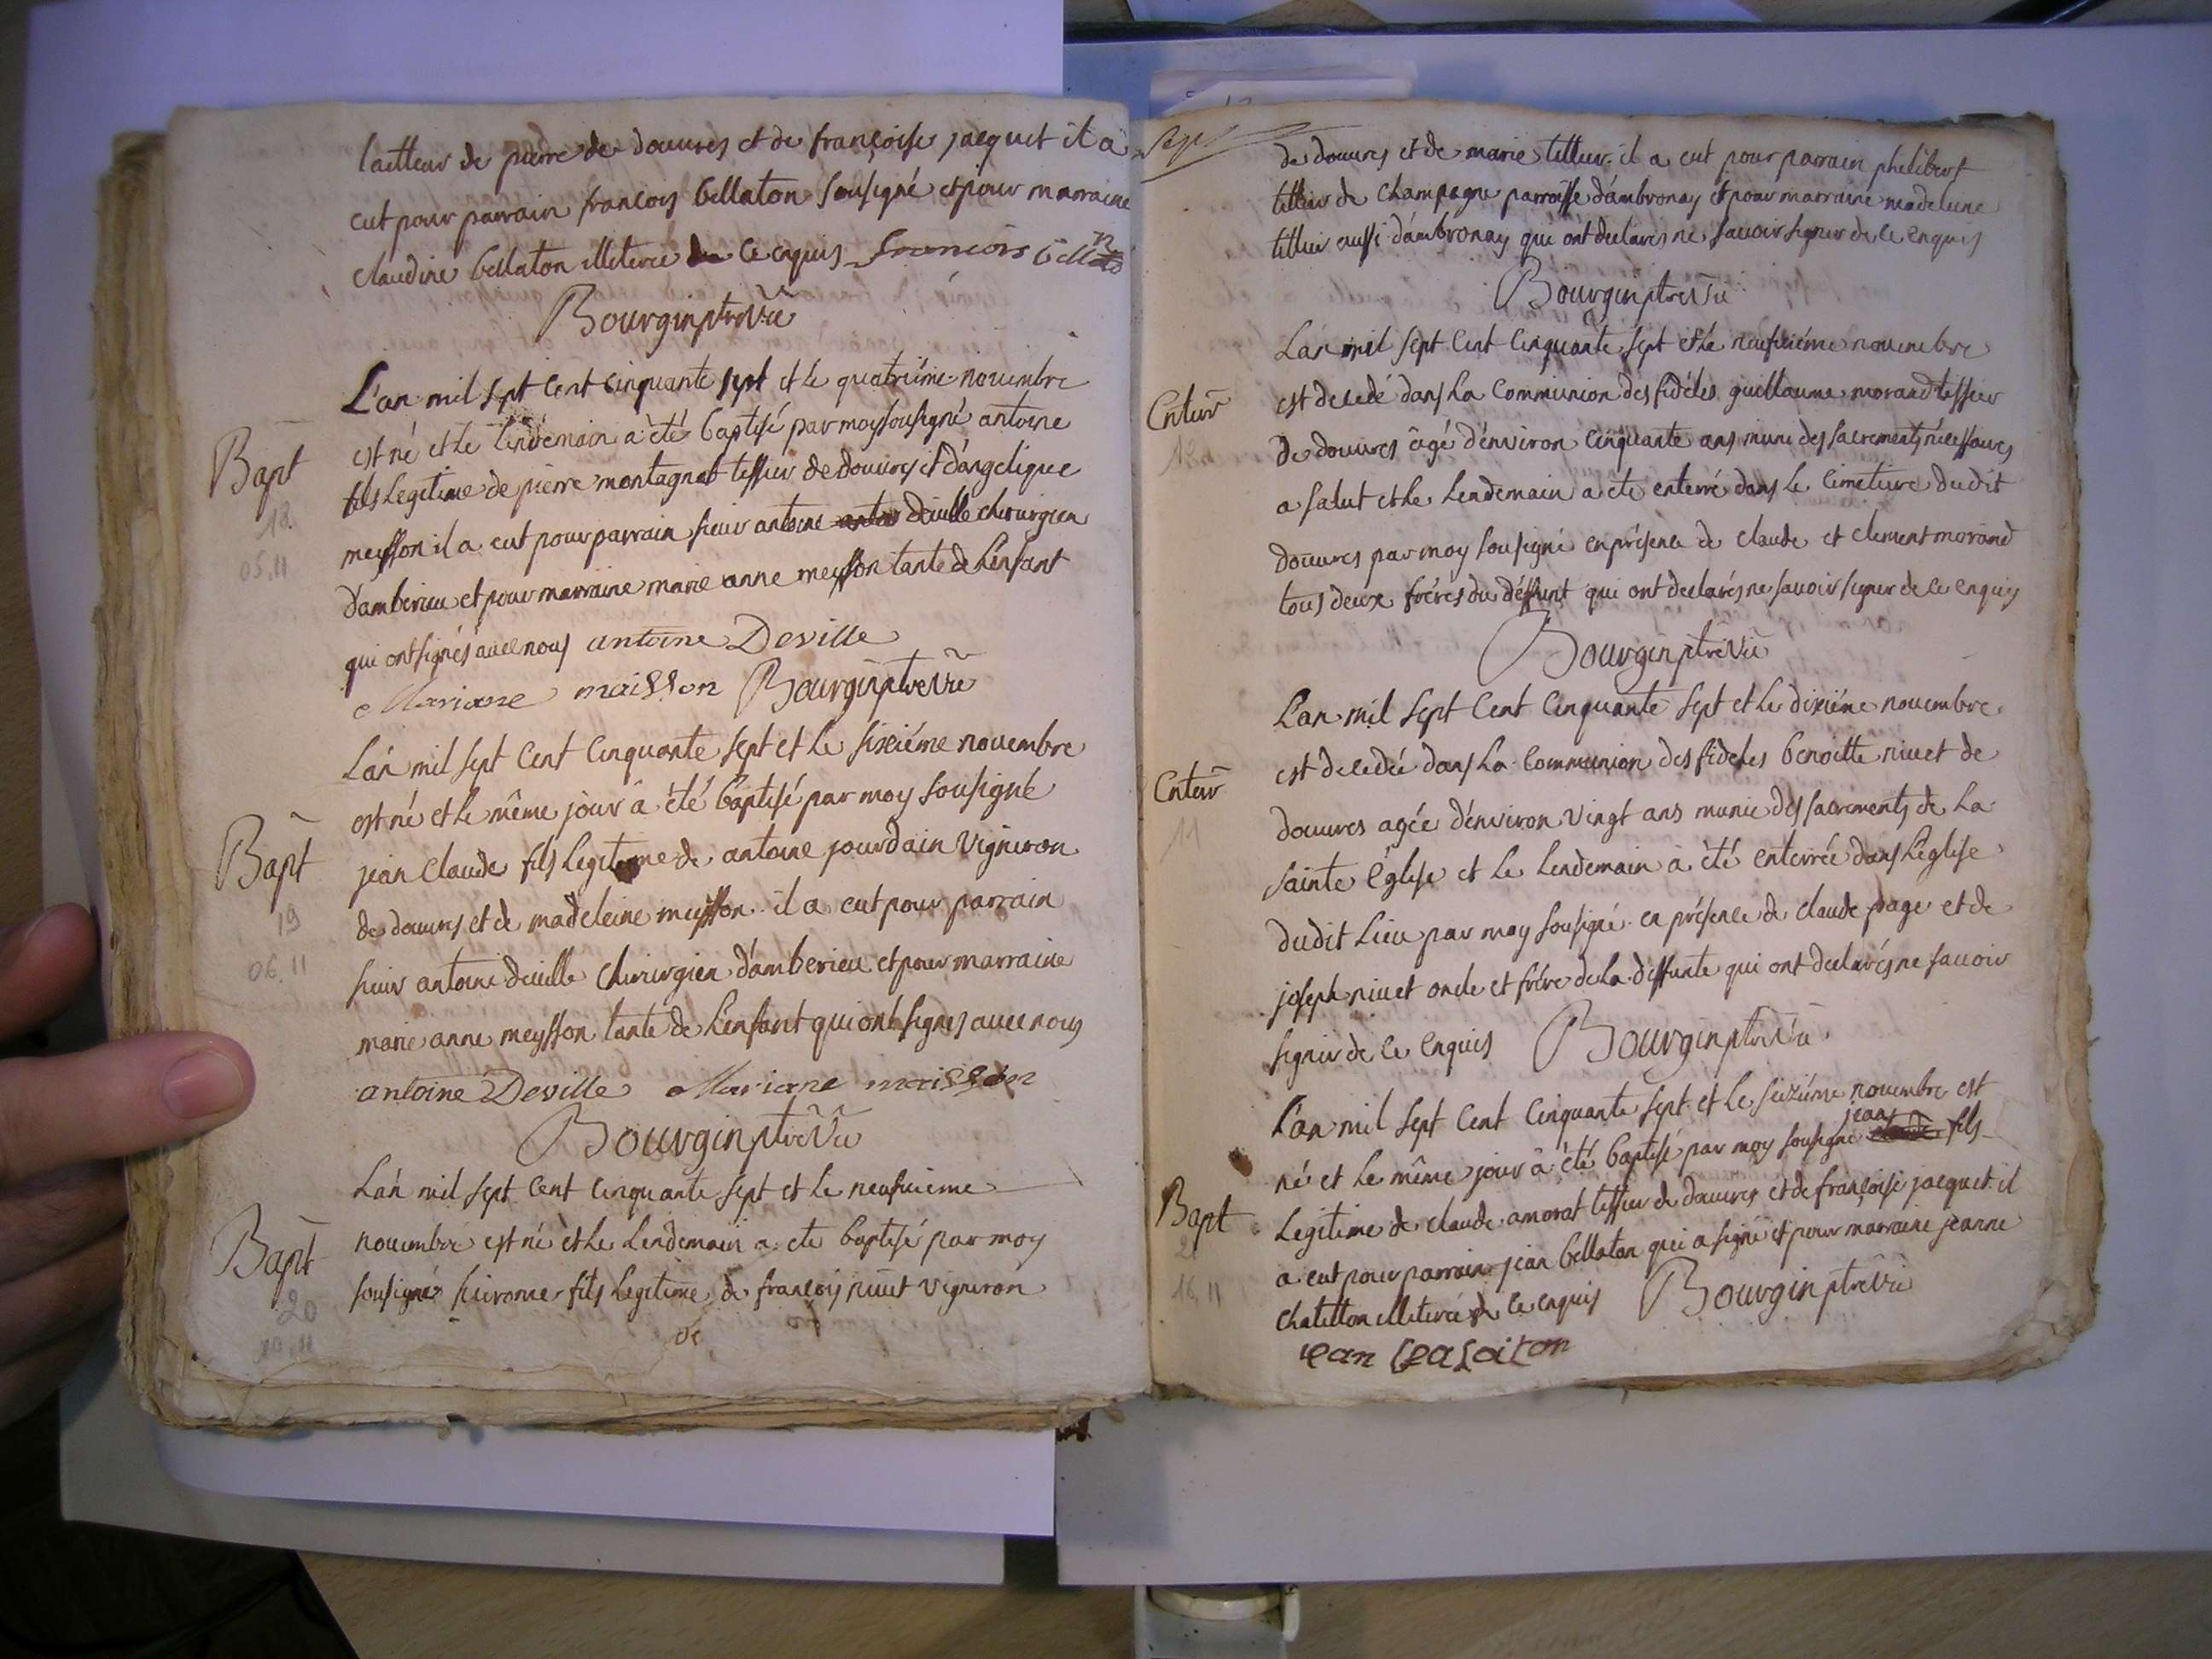 tailleur de pierre de douvres et de françoise jacquet il a
eut pour parrain françois bellaton sousigné et pour marraine
claudine bellaton illeteree de ce enquis francois bellaton
Bourgin ptre vic
L'an mil sept cent cinquante sept et le quatriéme novembre
est né et le lendemain a été baptisé par moy sousigné antoine
Bapt
18
05.11
fils legitime de pierre montagnat tessier de douvres et d'angelique
meysson il a eut pour parrain sieur antoine deville chirurgien
d'amberieu et pour marraine marie anne meysson tante de l'enfant
qui ont signés avec nous antoine Deville
Mariane maisson Bourgin ptre vic
L'an mil sept cent cinquante sept et le sixiéme novembre
est né et le même jour a été baptisé par moy sousigné
Bapt
19
06.11
jean claude fils legitime de antoine jourdain vigneron
de douvres et de madeleine meysson il a eut pour parrain
sieur antoine deville chirurgien d'amberieu et pour marraine
marie anne meysson tante de l'enfant qui ont signés avec nous
antoine Deville Mariane maisson
Bourgin ptre vic
L'an mil sept cent cinquante sept et le neufvieme
Bapt
20
10.11
novembre est né et le lendemain a ete baptisé par moy
sousigné hierome fils legitime de françois nivet vigneron
de
de douvres et de marie tillier il a eut pour parrain philibert
tillier de champagne parroisse d'ambronay et pour marraine madeleine
tillier aussi d'ambronay qui ont declarés ne savoir signer de ce enquis
Bourgin ptre vic
L'an mil sept cent cinquante sept et le neufviéme novembre
Enterr
est decedé dans la communion des fidéles guillaume morand tessier
de douvres âgé d'environ cinquante ans muni des sacrements nécessaires
a salut et le lendemain a ete enterré dans le cimetiere dudit
douvres par moy sousigné en présence de claude et clement morand
tous deux fréres du deffunt qui ont declarés ne savoir signer de ce enquis
Bourgin ptre vic
L'an mil sept cent cinquante sept et le dixiéme novembre
Enterr
11
est decedée dans la communion des fideles benoitte nivet de
douvres agée d'environ vingt ans munie des sacrements de la
sainte église et le lendemain a été enterrée dans l'eglise
dudit lieu par moy sousigné en présence de claude page et de
joseph nivet oncle et frére de la deffunte qui ont declarés ne savoir
signer de ce enquis Bourgin ptre vic
L'an mil sept cent cinquante sept et le seizième novembre est
né et le même jour a été baptisé par moy sousigné jean fils
Bapt
21
16.11
legitime de claude amorat tessier de douvres et de françoise jacquet il
a eut pour parrain jean bellaton qui a signé et pour marraine jeanne
chatillon illeterée de ce enquis Bourgin ptre vic